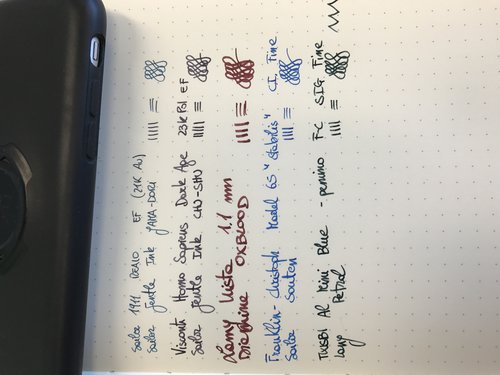 Sailor 1911 REALO EF (21K Au)
Sailor Jentle Ink YAMA-DORI
Visconti Homo Sapiens Dark Age 23K Pd EF
Sailor Jentle Ink CHU-SHU
Lamy Vista 1.1 mm
Diamine OXBLOOD
Franklin-Christoph Model 65 "Stabilis" S.I.G. Fine
Sailor Souten
TWSBI AL Mini Blue - penimo F-C SIG Fine
Lamy Petrol